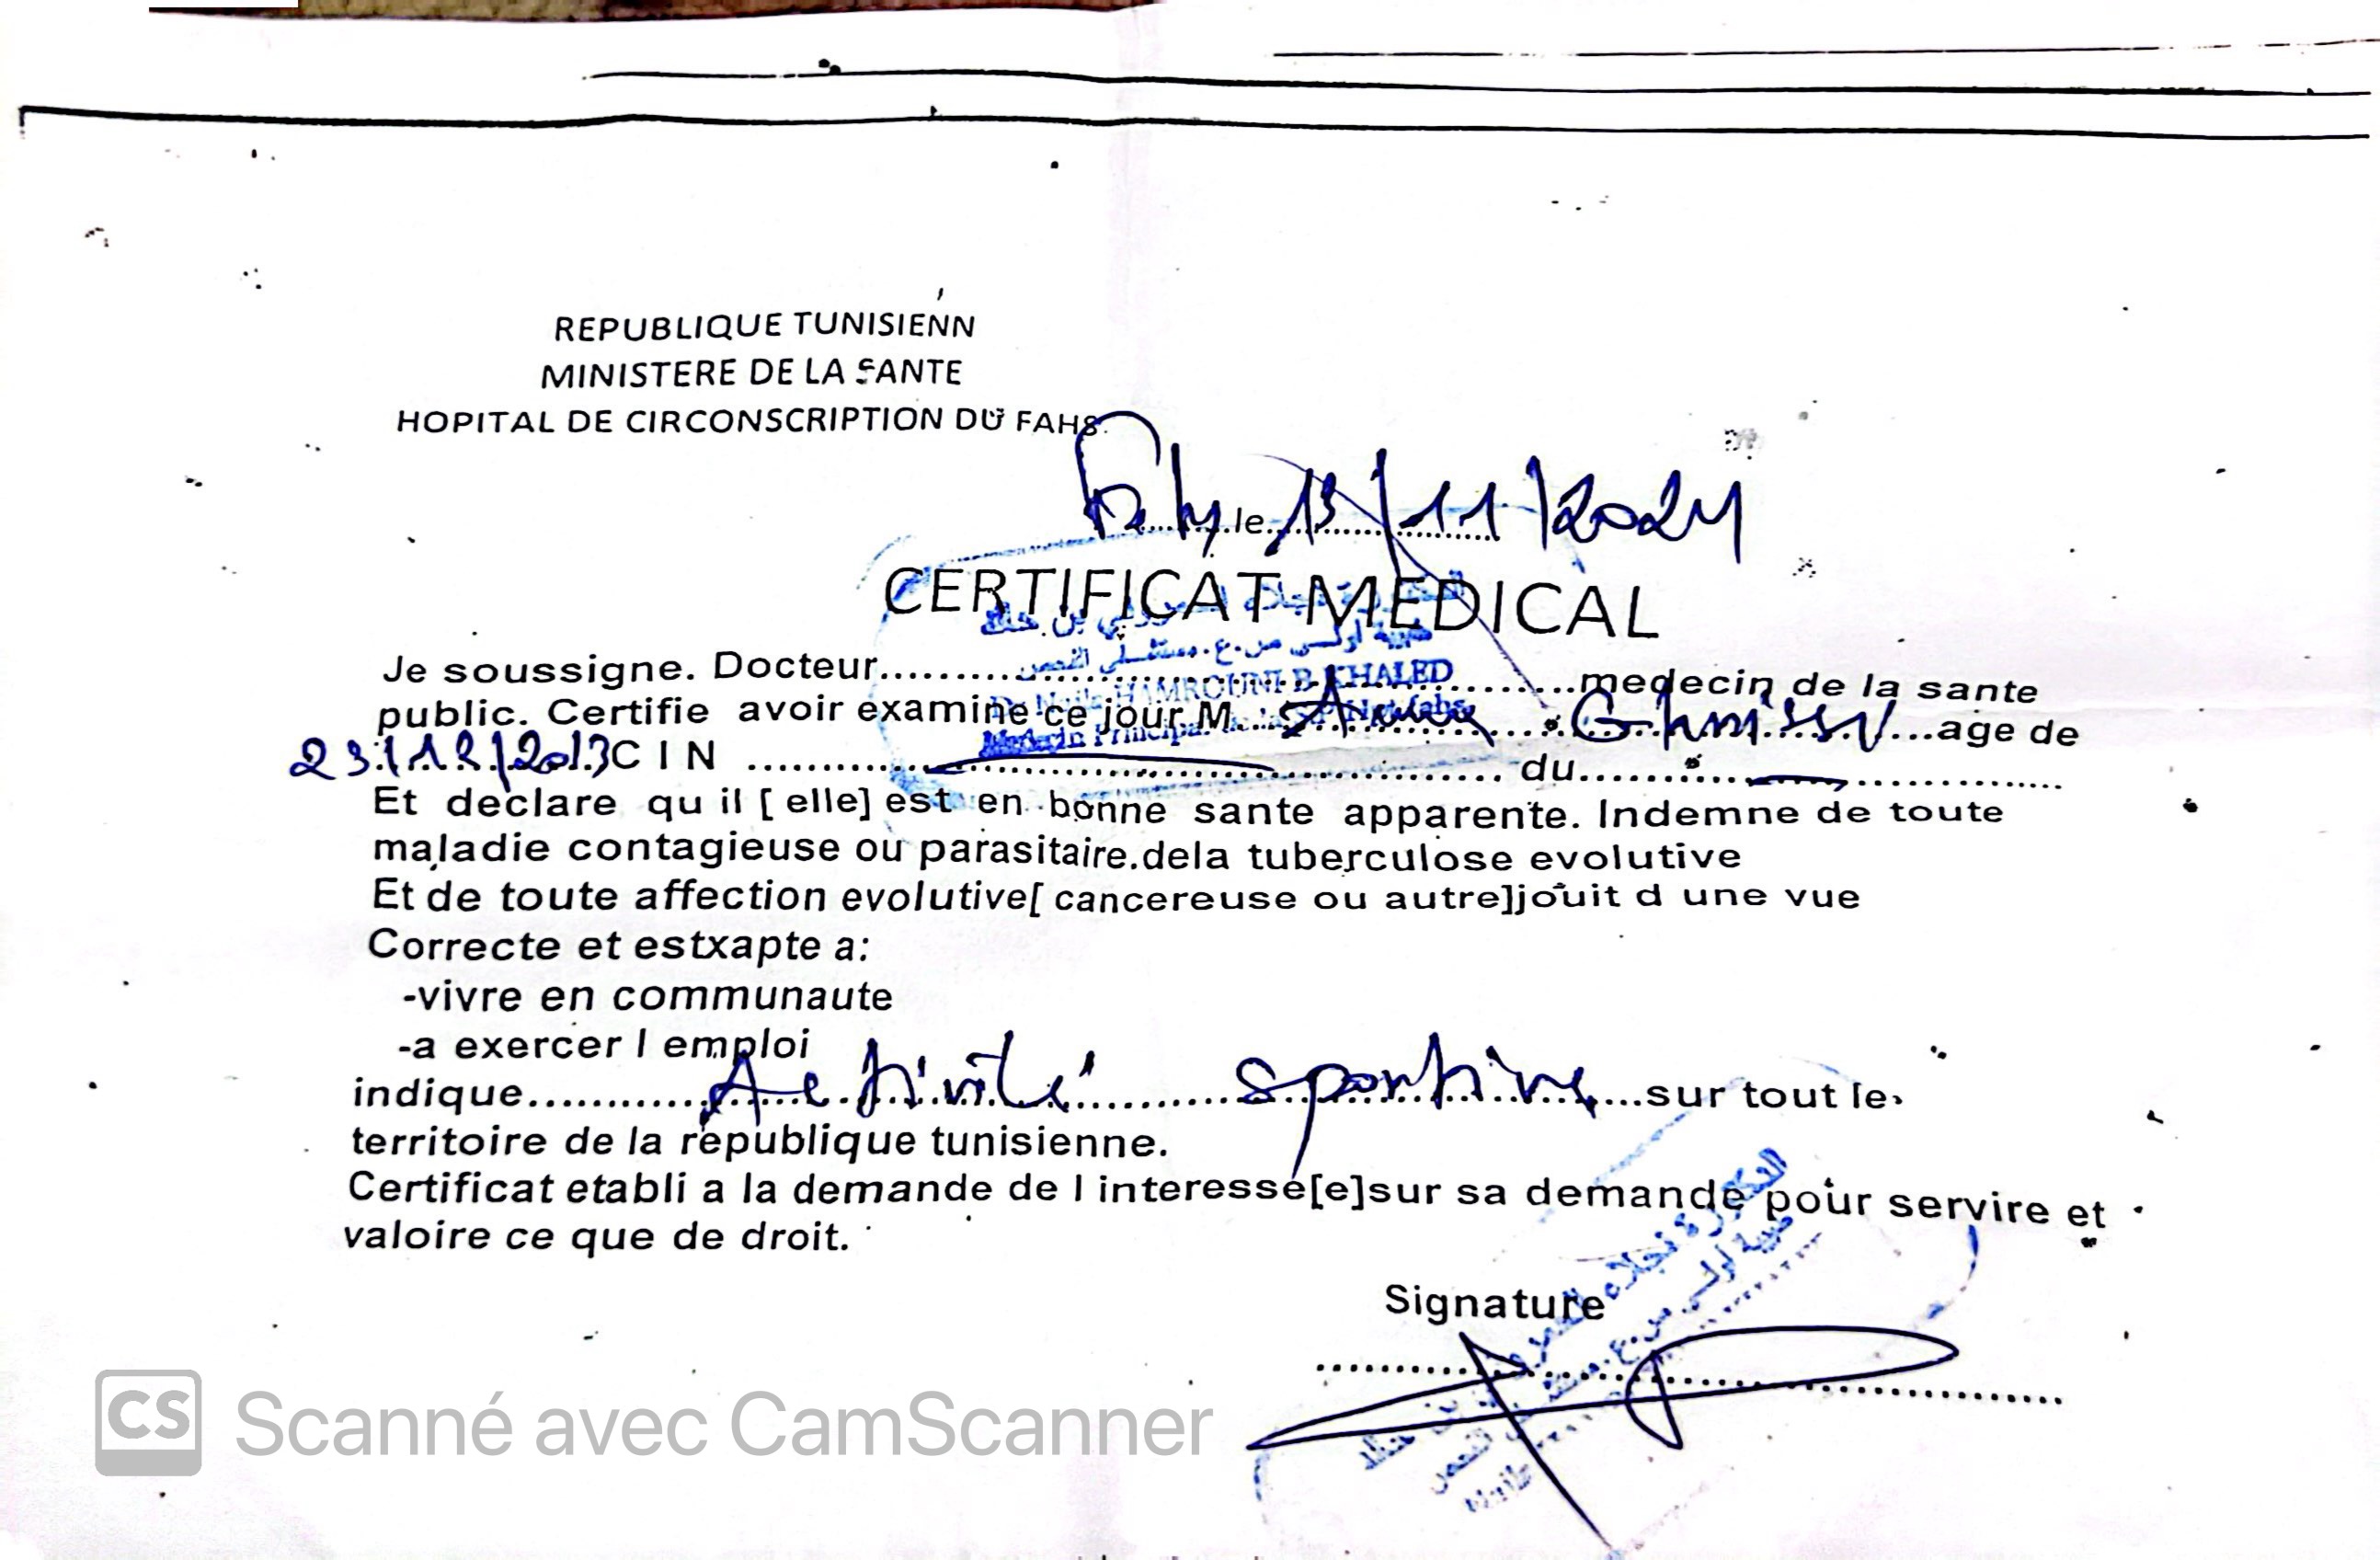 REPUBLIQUE TUNISIENN
MINISTERE DE LA SANTE
HOPITAL DE CIRCONSCRIPTION DU FAHS
le 13/11/2024
CERTIFICAT MEDICAL
Je soussigne. Docteur.......... HAMROUNI B.KHALED ..........medecin de la sante
public. Certifie avoir examine ce jour M.......... Ghnissi ..........age de
23/12/2013 CIN .......... du..........
Et declare qu il [ elle] est en bonne sante apparente. Indemne de toute
maladie contagieuse ou parasitaire.dela tuberculose evolutive
Et de toute affection evolutive[ cancereuse ou autre]jouit d une vue
Correcte et estxapte a:
-vivre en communaute
-a exercer l emploi
indique.......... Activité sportive ..........sur tout le
territoire de la republique tunisienne.
Certificat etabli a la demande de l interesse[e]sur sa demande pour servire et
valoire ce que de droit.
Signature
CS Scanné avec CamScanner